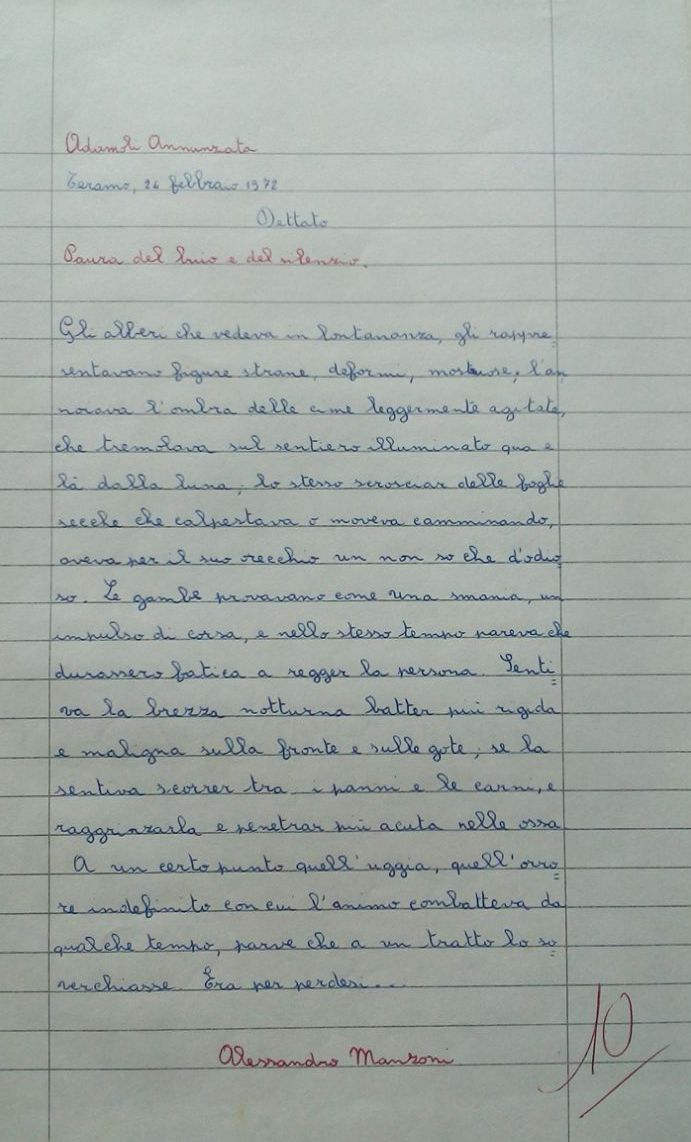 Adamoli Annunzata
Teramo, 26 febbraio 1972
Dettato
Paura del buio e del silenzio.
Gli alberi che vedeva in lontananza, gli rappre
sentavano figure strane, deformi, mostuose; l'an
noiava l'ombra delle cime leggermente agitate,
che tremolava sul sentiero illuminato qua e
là dalla luna; lo stesso scrosciar delle foglie
secche che calpestava o moveva camminando,
aveva per il suo orecchio un non so che d'odio
so. Le gambe provavano come una smania, un
impulso di corsa, e nello stesso tempo pareva che
durassero fatica a regger la persona. Senti=
va la brezza notturna batter più rigida
e maligna sulla fronte e sulle gote; se la
sentiva scorrer tra i panni e le carni, e
raggrinzarla e penetrar più acuta nelle ossa
A un certo punto quell'uggia, quell'orro=
re indefinito con cui l'animo combatteva da
qualche tempo, parve che a un tratto lo so=
verchiasse. Era per perdesi...
Alessandro Manzoni
10